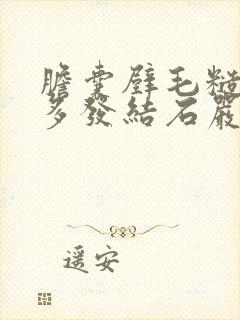 膽囊壁毛糙
多發結石嚴
遥安